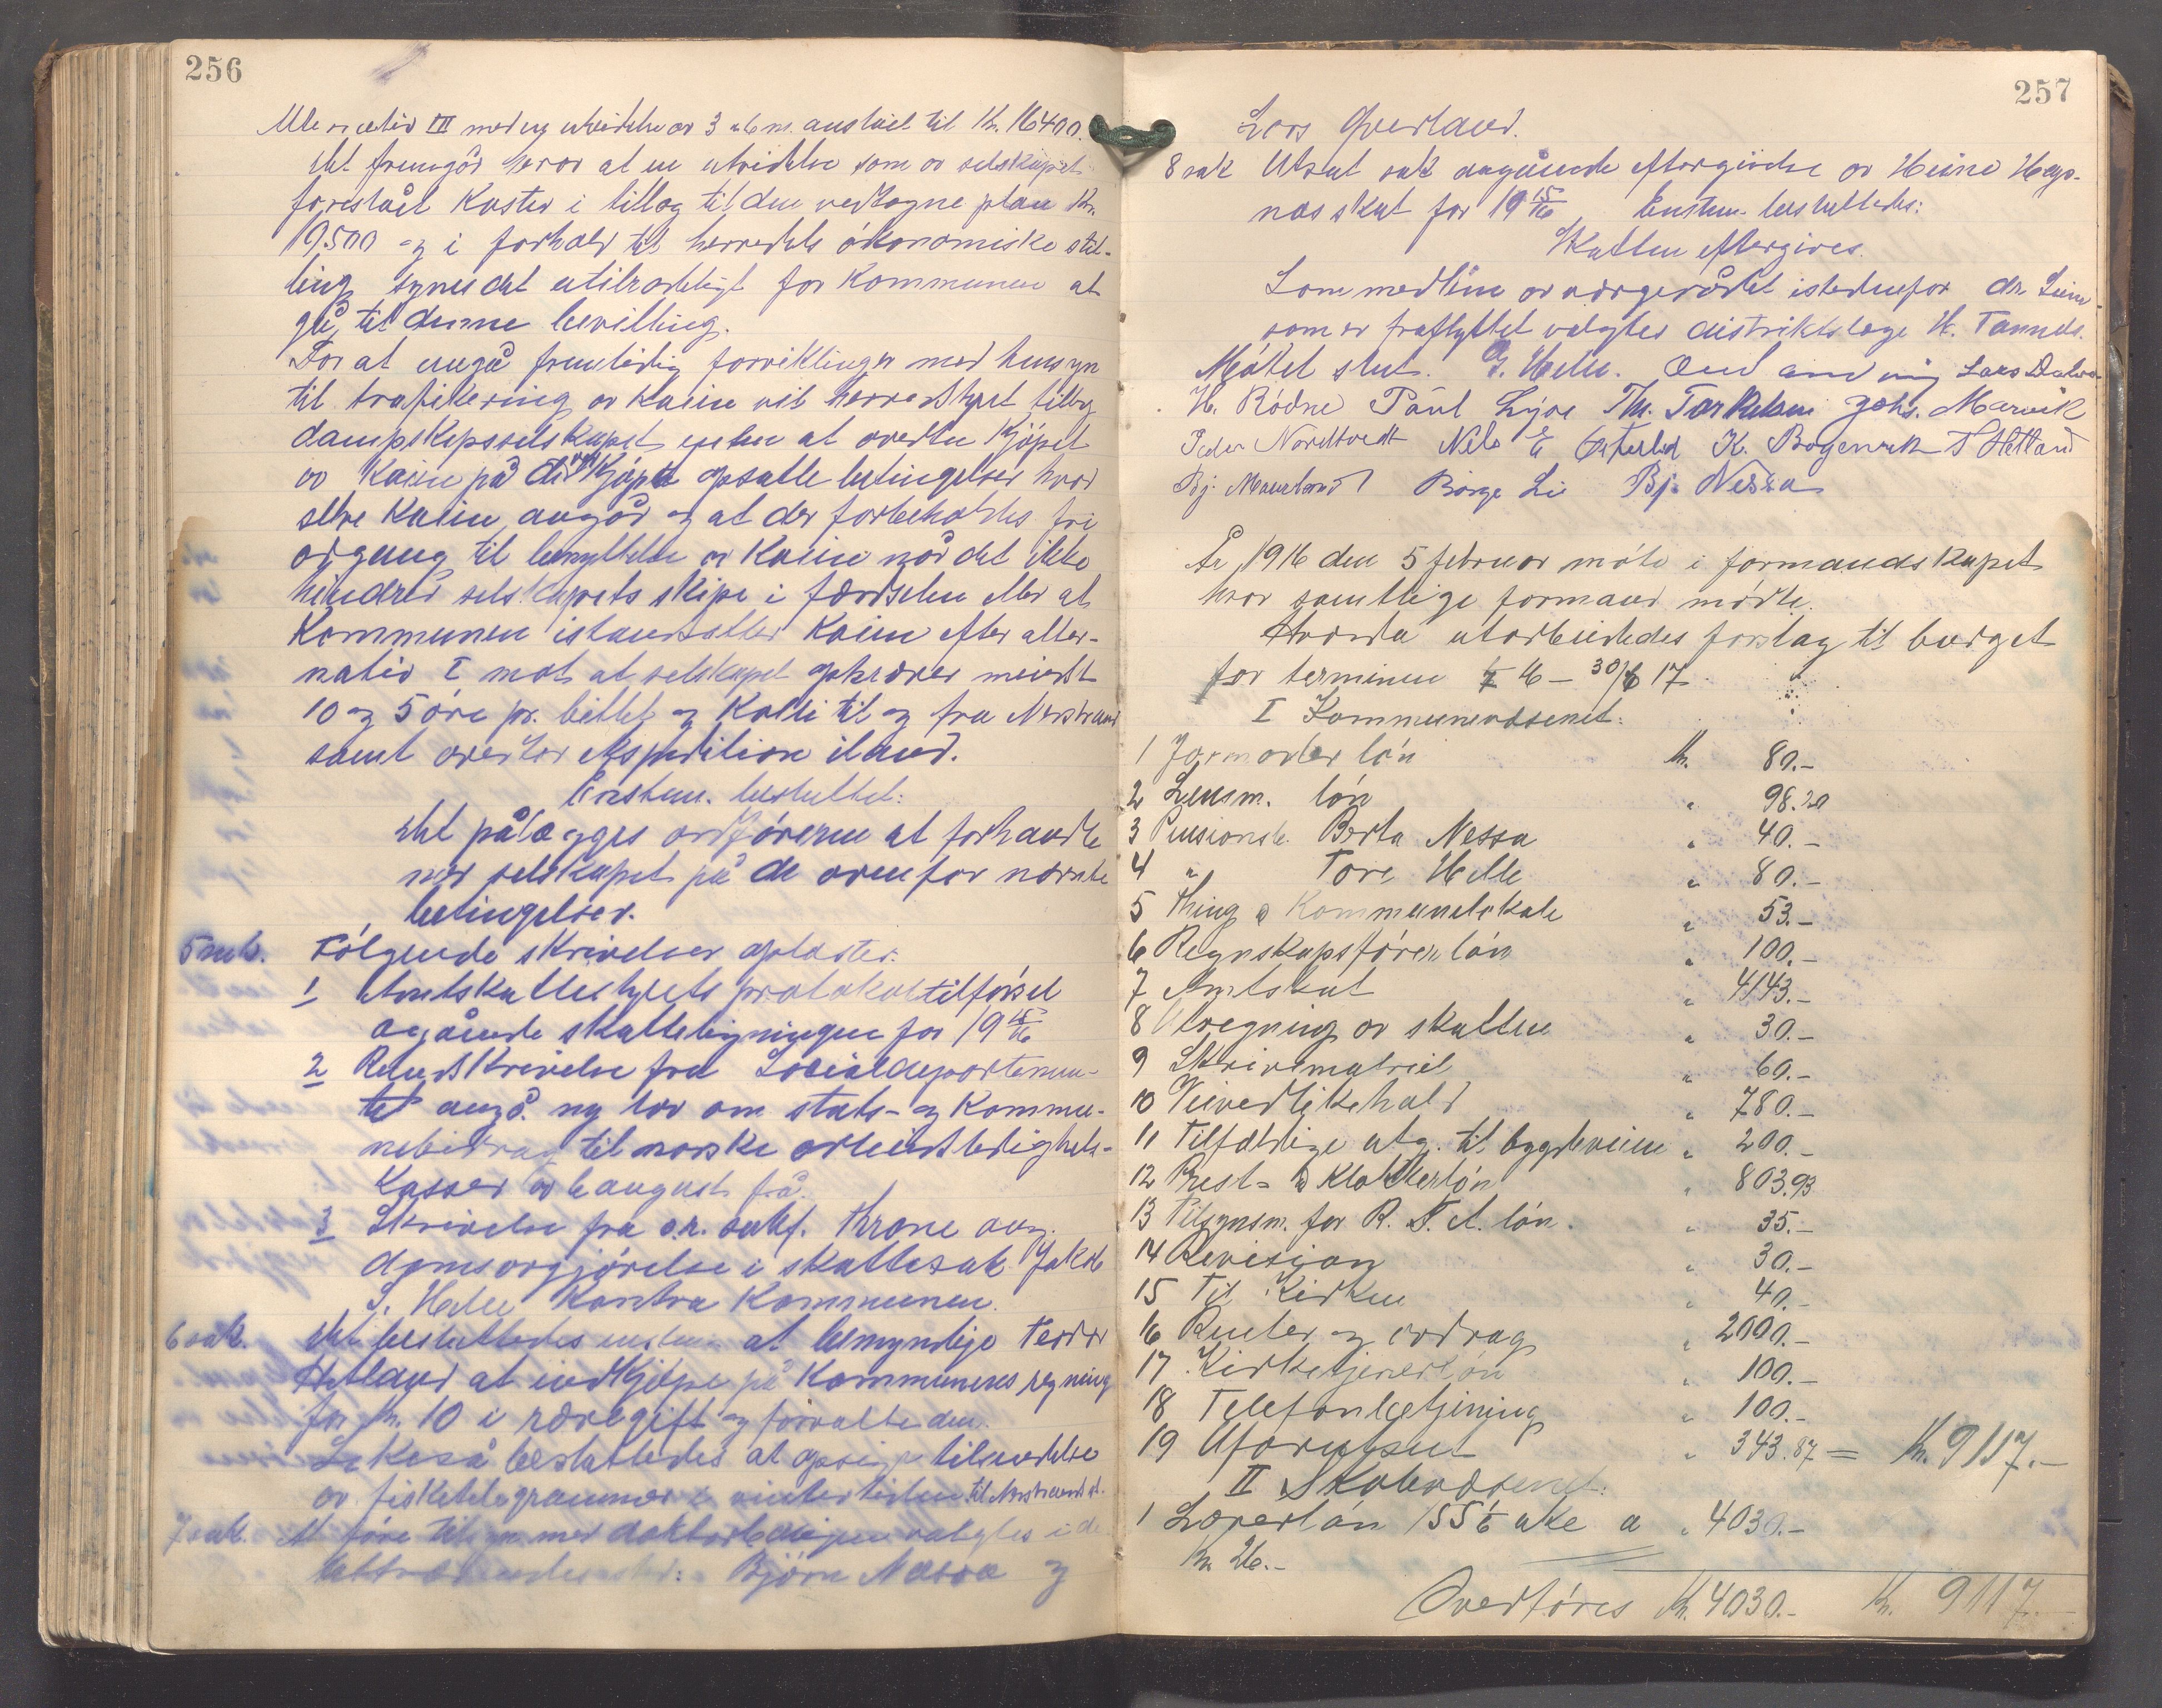 256
Alternativ III med ny utvidelse av 3 alen anslaaet til Kr. 16400.
Det fremgår herav at en utvidelse som av selskapet
foreslået koster i tillæg til den vedtagne plan Kr.
19500 og i forhold til herredets økonomiske stil-
ling synes det utilraadeligt for Kommunen at
gå til denne bevilling.
For at undgå fremtidig forviklinger med hensyn
til trafikering av kaien vil herredstyret tilby
dampskipsselskapet enten at overta kjøpet
av Kaien på de ved kjøpet opsatte betingelser hvad
selve Kaien angår og at der forbeholdes fri
adgang til benyttelse av Kaien når det ikke
hindrer selskapets skipe i færdselen eller at
Kommunen istandsætter Kaien efter alter-
nativ I mot at selskapet opkræver meindst
10 og 5 øre pr. billet og Kolli til og fra Nerstrand
samt overtar ekspedition iland.
Enstem. besluttet:
Det pålægges ordføreren at forhandle
med selskapet på de ovenfor nævnte
betingelser.
5 sak. Følgende skrivelser oplæstes:
1 Amtskattestyrets protokoltilførsel
angående skatteligningen for 19 15/16
2 Rundskrivelse fra Socialdepartemen-
tet angå. ny lov om stats- og Kommu-
nebidrag til norske arbeidsledigheds-
Kasser av 6 august f.å.
3 Skrivelse fra o.r. sakf. Krone ang.
domsavgjørelse i skattesak Jakob
S. Helle kontra Kommunen.
6 sak. Det besluttedes enstem. at bemyndige Teodor
Hetland at indkjøpe på Kommunens regning
for Kr. 10 i rævegift og forvalte den.
Likeså besluttedes at opsige tilsendelse
av fisketelegrammer i vintertiden til Nerstrand st.
7 sak. At føre tilsyn med doktorboligen valgtes i de
Bjørn Nessa og
257
Lars Øverland.
8 sak Utsat sak angående eftergivelse av Heine Hege-
nas skat for 19 15/16, Enstem. besluttedes:
Skatten eftergives.
Som medlem av værgerådet istedenfor dr.
som er fraflyttet valgtes distriktslæge H. Tannds.
Møtet slut. G. Helle. Lars Dalva
H. Rødne Paul Lyse Th. Torkelsen Johs. Marvik
Peder Nordtvedt Nels E Østerhd K. Bogenvik T Hetland
Bj. Mæland Børge Li Bj. Nessa
År 1916 den 5 februar møte i formandskapet
hvor samtlige formænd mødte.
Hvorda utarbeidedes forslag til budget
for terminen 1/7 16 – 30/6 17
I Kommunevæsenet:
1 Jormoder løn Kr. 80.–
2 Lensm. løn " 98.20
3 Pensionsk. Berta Nessa " 40.–
4 " Tore Helle " 80.–
5 Thing a Kommunelokale " 53.–
6 Regnskapsføren løn " 100.–
7 Amtskat " 4143.–
8 Utregning av skatten " 30.–
9 Skrivematriel " 60.–
10 Veivedlikehald " 780.–
11 Tilfældige utg. til bygdeveiene " 200.–
12 Prest- & Klokkerløn " 803.93
13 Tilsynsm. for R. T. A. løn. " 35.–
14 Revision " 30.–
15 Til Kirken " 40.–
16 Renter og avdrag " 2000.–
17 Kirketjenerløn " 100.–
18 Telefonbetjening " 100.–
19 Uforutset " 343.87 = Kr. 9117.–
II Skolevæsenet:
1 Lærerløn 155 uke a " 4030.–
Kr. 26.–
Overføres Kr. 4030.– Kr. 9117.–